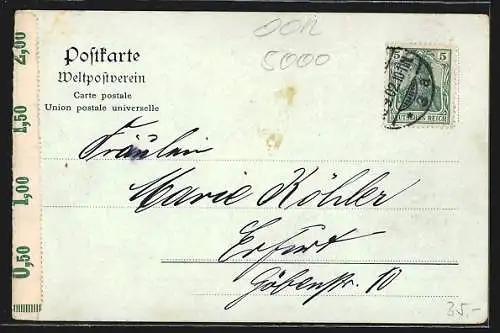 OOR
5000
Postkarte
Weltpostverein
Carte postale
Union postale universelle
5
DEUTSCHES REICH
Fräulein
Marie Köhler
Erfurt
Göbenstr. 10
35.-
2,00
1,50
1,00
0,50